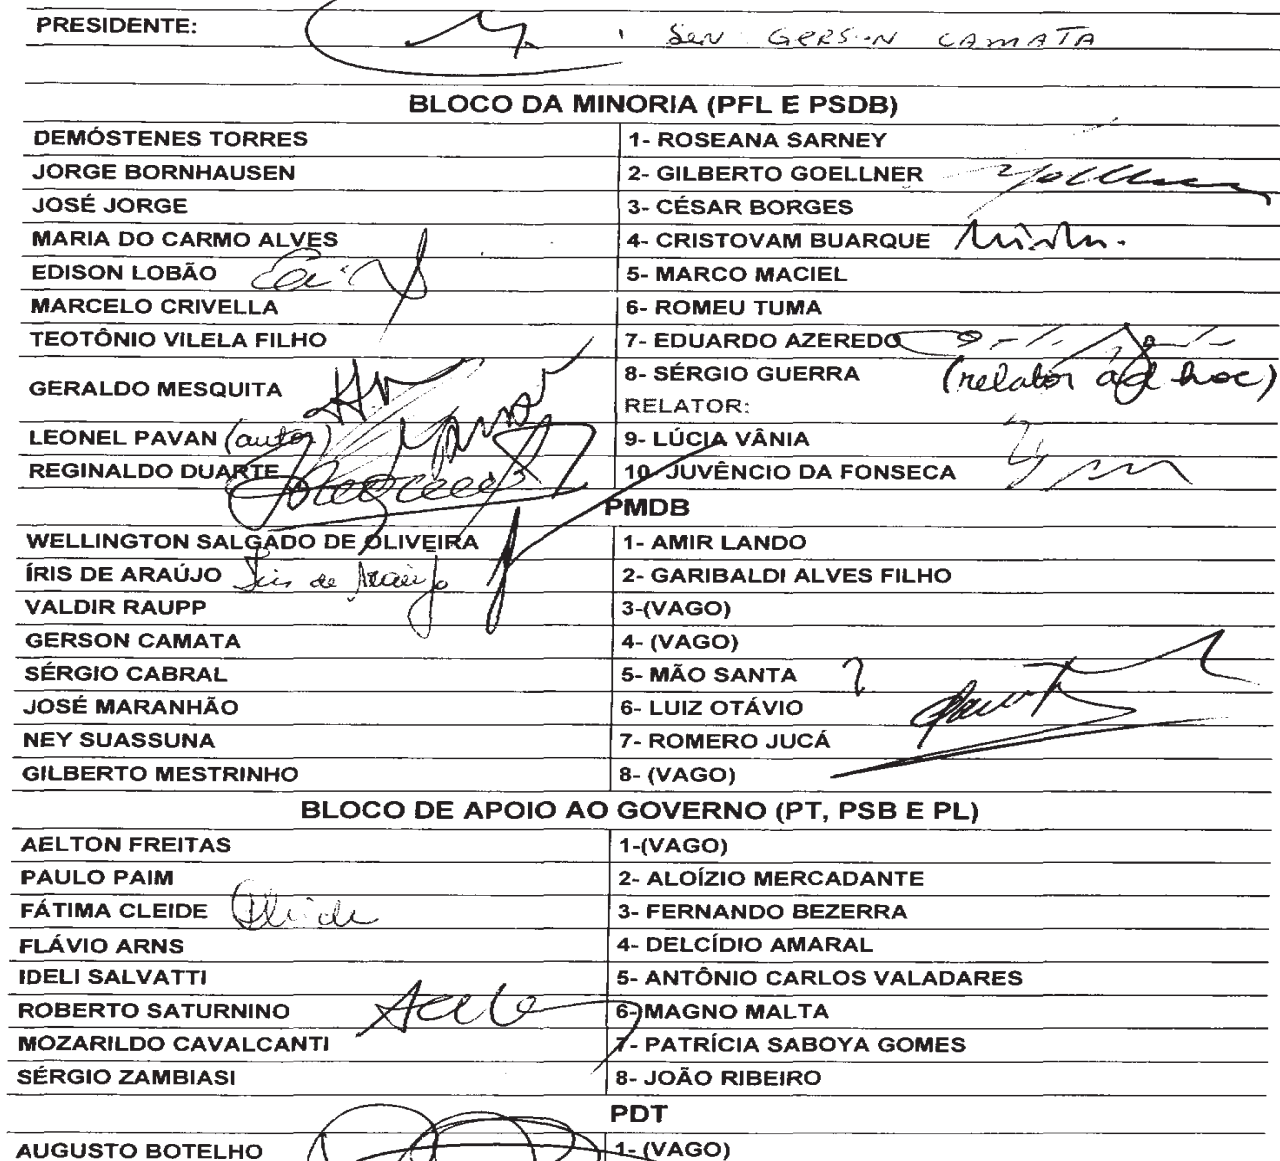 PRESIDENTE: SEN GERSON CAMATA
BLOCO DA MINORIA (PFL E PSDB)
DEMÓSTENES TORRES 1- ROSEANA SARNEY
JORGE BORNHAUSEN 2- GILBERTO GOELLNER
JOSÉ JORGE 3- CÉSAR BORGES
MARIA DO CARMO ALVES 4- CRISTOVAM BUARQUE
EDISON LOBÃO 5- MARCO MACIEL
MARCELO CRIVELLA 6- ROMEU TUMA
TEOTÔNIO VILELA FILHO 7- EDUARDO AZEREDO
GERALDO MESQUITA 8- SÉRGIO GUERRA (relator ad hoc)
RELATOR:
LEONEL PAVAN (autor) 9- LÚCIA VÂNIA
REGINALDO DUARTE 10- JUVÊNCIO DA FONSECA
PMDB
WELLINGTON SALGADO DE OLIVEIRA 1- AMIR LANDO
ÍRIS DE ARAÚJO Iris de Araújo 2- GARIBALDI ALVES FILHO
VALDIR RAUPP 3-(VAGO)
GERSON CAMATA 4- (VAGO)
SÉRGIO CABRAL 5- MÃO SANTA
JOSÉ MARANHÃO 6- LUIZ OTÁVIO
NEY SUASSUNA 7- ROMERO JUCÁ
GILBERTO MESTRINHO 8- (VAGO)
BLOCO DE APOIO AO GOVERNO (PT, PSB E PL)
AELTON FREITAS 1-(VAGO)
PAULO PAIM 2- ALOÍZIO MERCADANTE
FÁTIMA CLEIDE 3- FERNANDO BEZERRA
FLÁVIO ARNS 4- DELCÍDIO AMARAL
IDELI SALVATTI 5- ANTÔNIO CARLOS VALADARES
ROBERTO SATURNINO 6- MAGNO MALTA
MOZARILDO CAVALCANTI 7- PATRÍCIA SABOYA GOMES
SÉRGIO ZAMBIASI 8- JOÃO RIBEIRO
PDT
AUGUSTO BOTELHO 1- (VAGO)